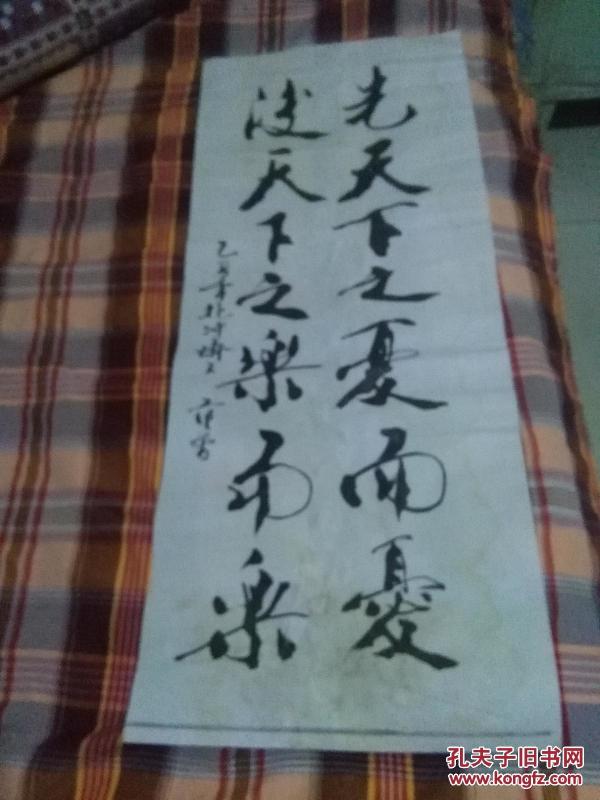 先天下之憂而憂
後天下之樂而樂
孔夫子旧书网
www.kongfz.com